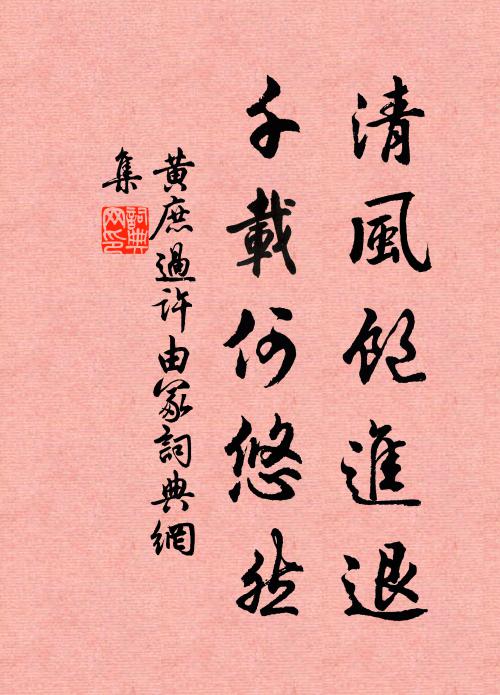 清風飽進退
千載何悠然
黃庶過許由冢詞典網
集
詞典
网印